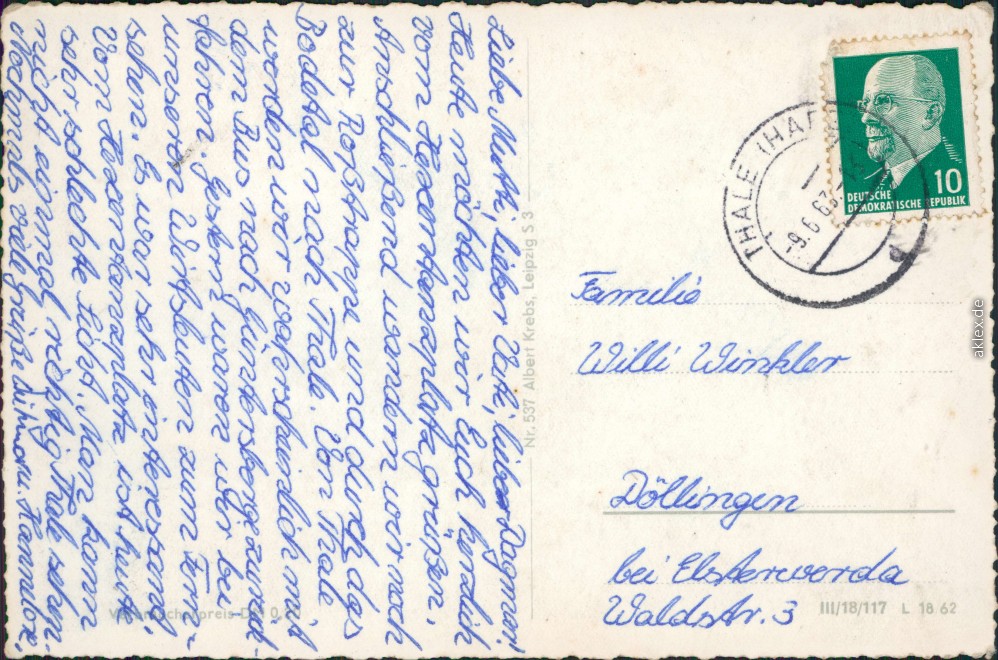 Liebe Mutti, lieber Vati, liebe Dagmar!
Heute möchten wir Euch herzlich
vom Hexentanzplatz grüßen.
Anschließend wandern wir noch
zur Roßtrappe und durch das
Bodetal nach Thale. Von Thale
werden wir wahrscheinlich mit
dem Bus nach Güntersberge zurück-
fahren. Gestern waren wir bei
unseren Wirtsleuten zum Fern-
sehen. Es war sehr interessant.
Vom Hexentanzplatz ist heute
sehr schlechte Sicht. Man kann
nicht einmal richtig Thale sehen.
Nochmals viele Grüße u. Hannelore.
Verbraucherpreis DM 0,20
Nr. 537 Albert Krebs, Leipzig S 3
THALE (HARZ)
-9.6.63
10
DEUTSCHE
DEMOKRATISCHE REPUBLIK
Familie
Willi Winkler
Döllingen
bei Elsterwerda
Waldstr. 3
III/18/117 L 18 62
aklex.de